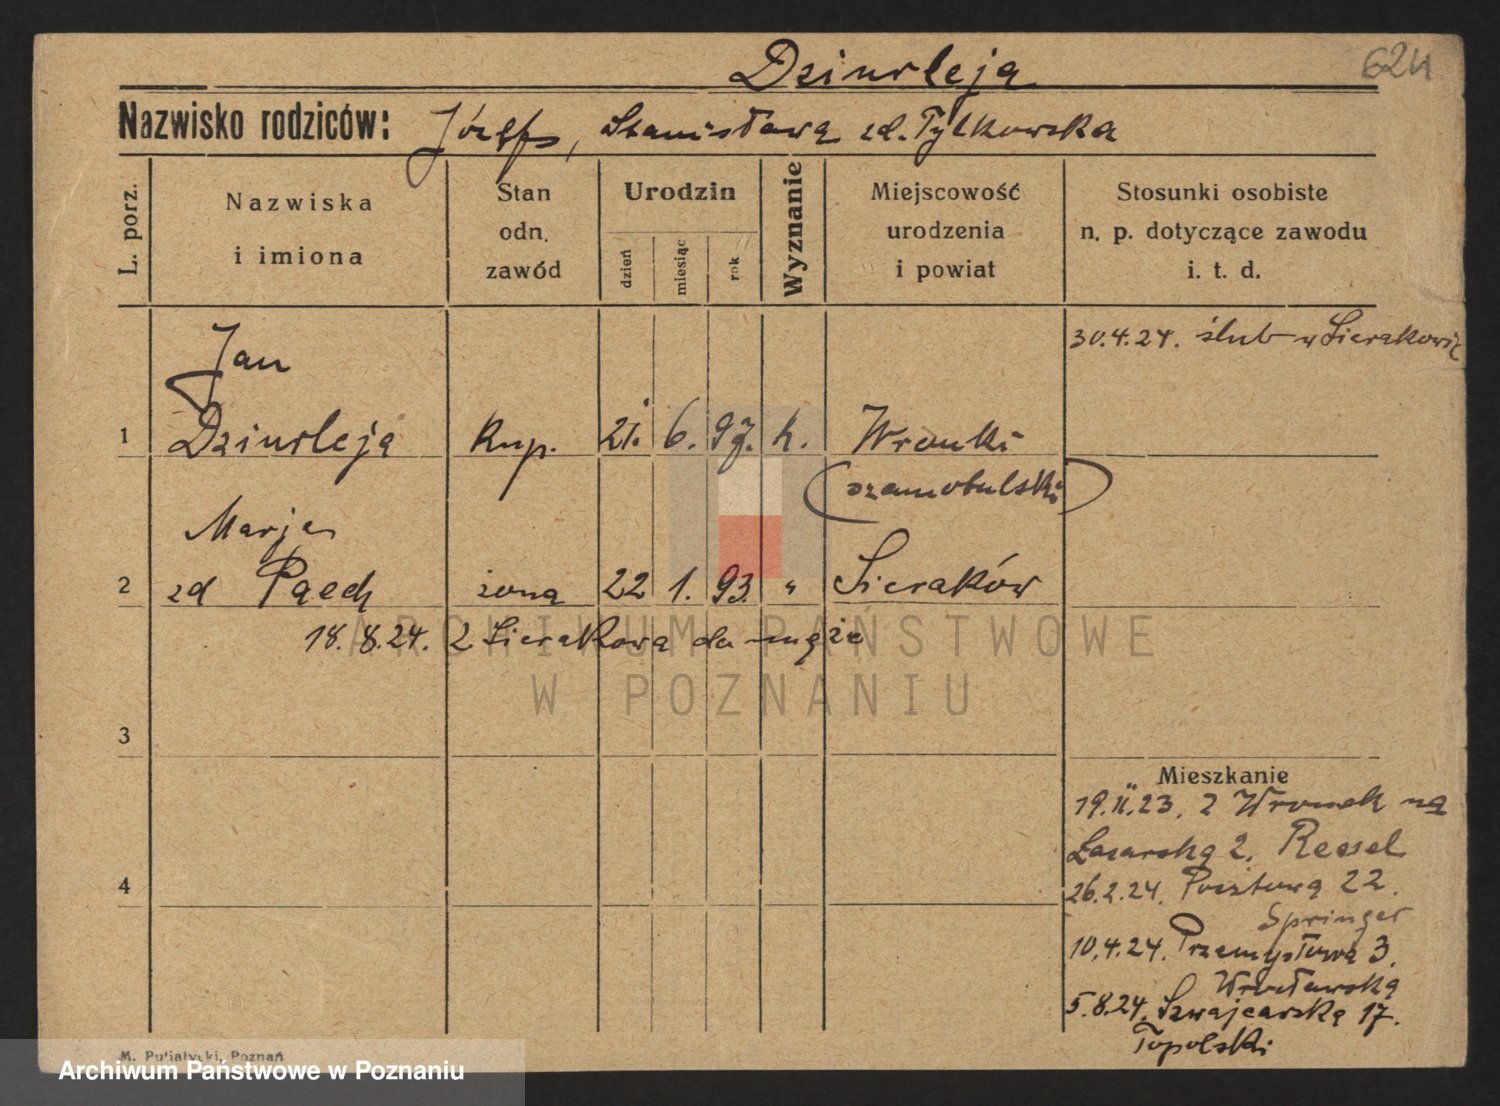 Dziurleja
624
Nazwisko rodziców: Józef, Stanisława zd. Tylkowska
L. porz.
Nazwiska
i imiona
Stan
odn.
zawód
Urodzin
dzień
miesiąc
rok
Wyznanie
Miejscowość
urodzenia
i powiat
Stosunki osobiste
n. p. dotyczące zawodu
i. t. d.
30.4.24. ślub w Sierakowie
Jan
1 Dziurleja kup. 21. 6. 97. k. Wronki
(szamotulski)
Marja
2 zd Paech żona 22 1. 93. " Sieraków
18.8.24. z Sierakowa do męża
ARCHIWUM PAŃSTWOWE
W POZNANIU
3
Mieszkanie
19.II.23. z Wronek na
Łazarską 2. Ressel
4
26.2.24. Pocztowa 22.
Springer
10.4.24. Przemysłowa 3.
Wrocławska
5.8.24. Szwajcarska 17.
Topolski
M. Putiatycki, Poznań
Archiwum Państwowe w Poznaniu